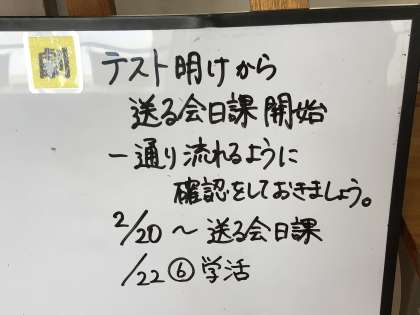 劇 テスト明けから
送る会日課開始
一通り流れるように
確認をしておきましょう。
2/20～送る会日課
/22⑥学活